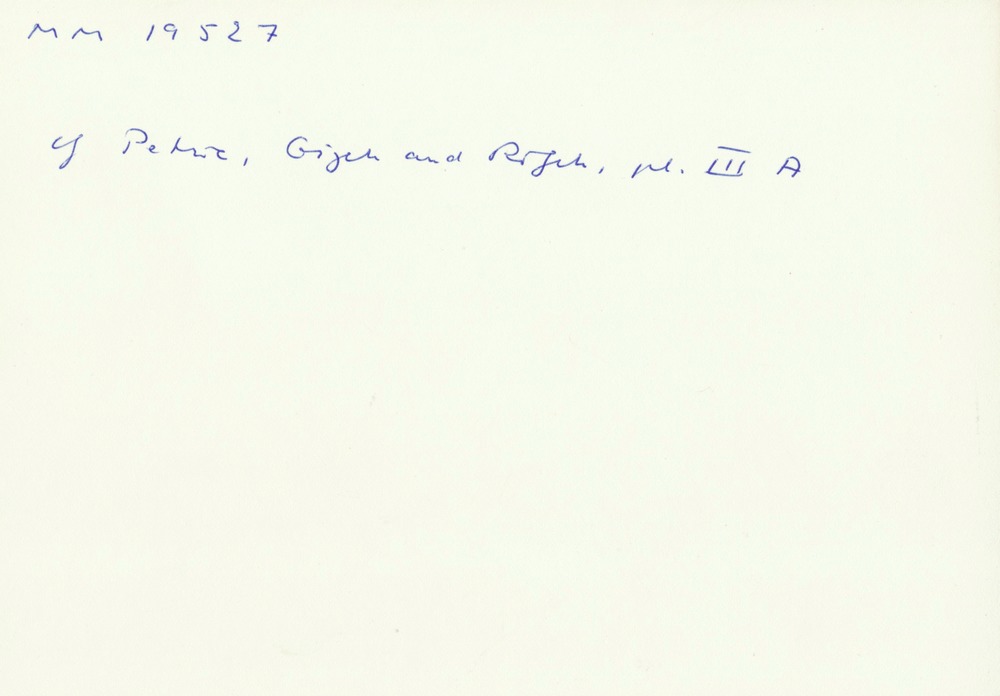 MM 19527
cf Petrie, Gizeh and Rifeh, pl. III A